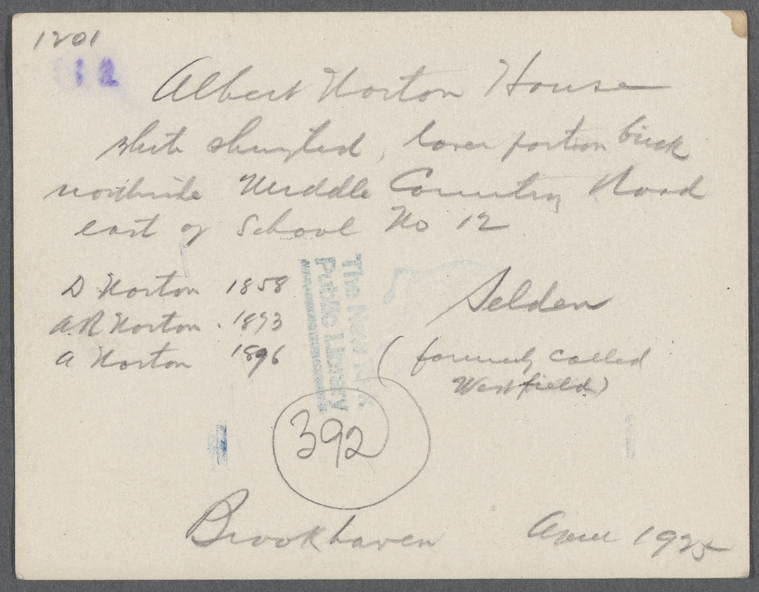 1201
12
Albert Norton House
white shingled, lower portion brick
northside Middle Country Road
east of School No 12
D. Norton 1858
A.R Norton. 1873
A Norton 1896
Selden
(formerly called
Westfield)
The New York
Public Library
392
Brookhaven April 1925